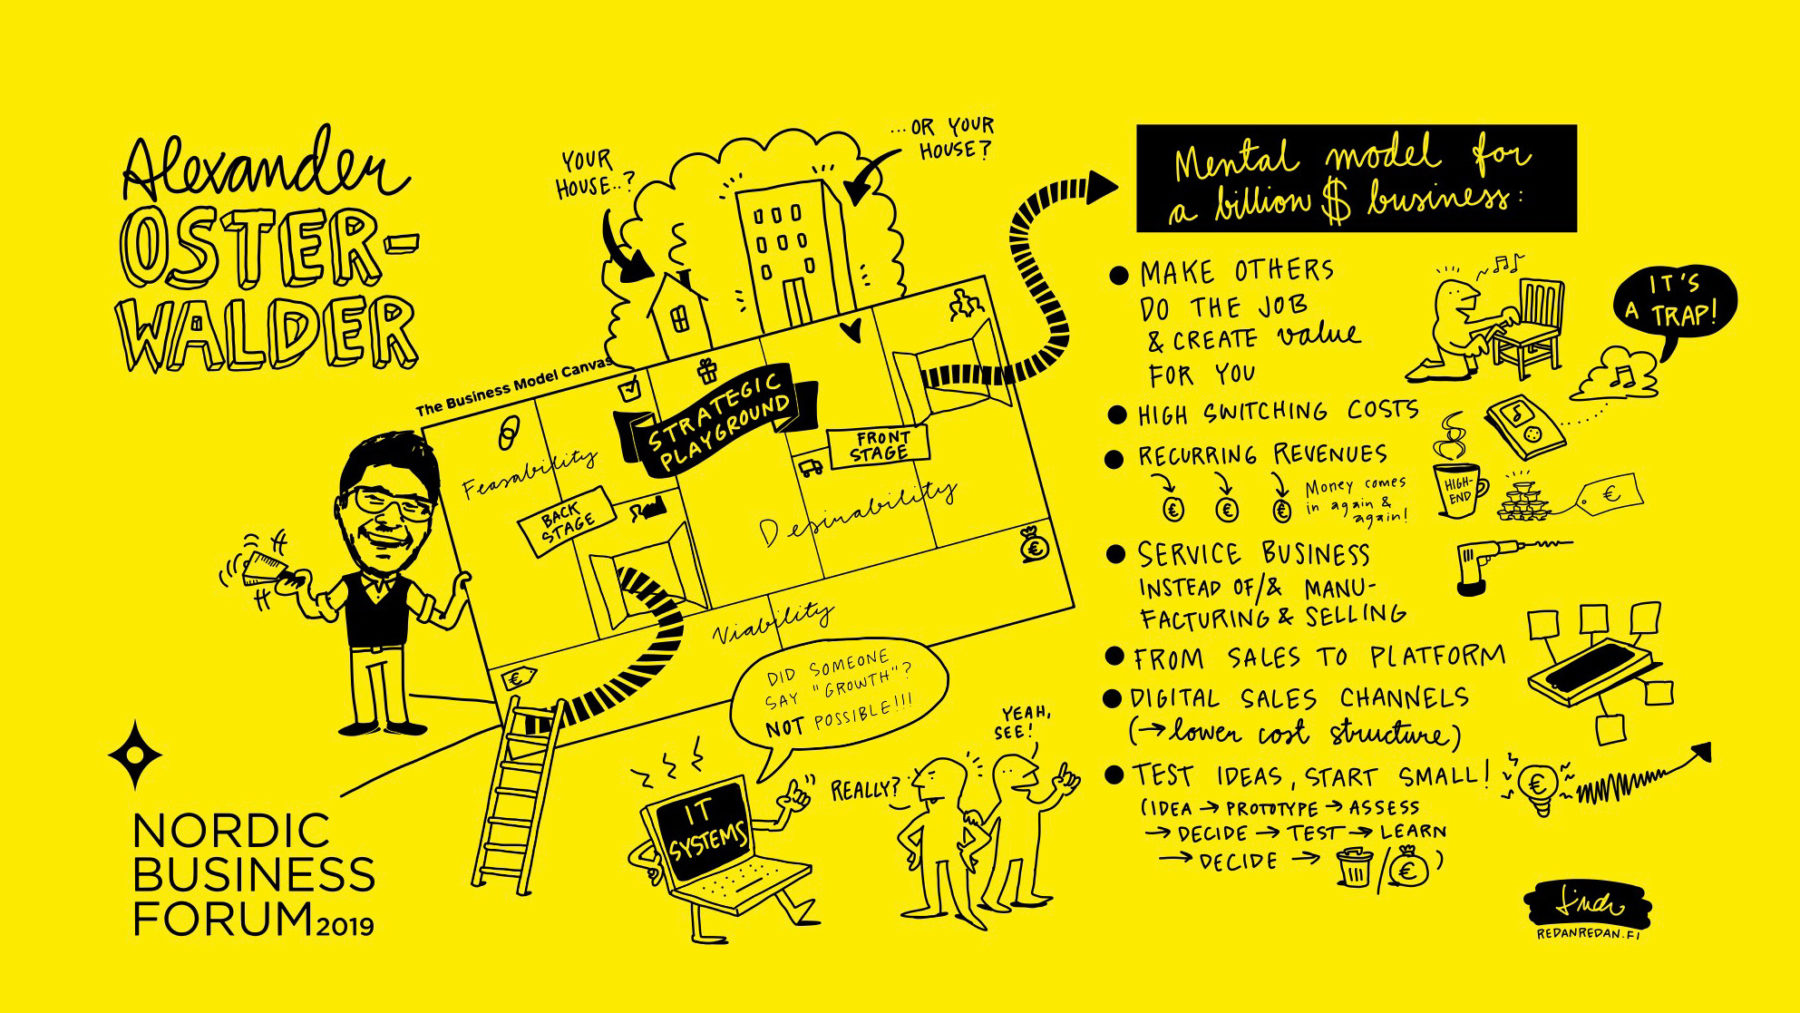 Alexander
OSTER-
WALDER
NORDIC
BUSINESS
FORUM2019
YOUR
HOUSE..?
...OR YOUR
HOUSE?
The Business Model Canvas
STRATEGIC
PLAYGROUND
Feasability
BACK
STAGE
FRONT
STAGE
Desirability
Viability
€
€
DID SOMEONE
SAY "GROWTH"?
NOT POSSIBLE!!!
IT
SYSTEMS
REALLY?
YEAH,
SEE!
Mental model for
a billion $ business:
● MAKE OTHERS
DO THE JOB
& CREATE value
FOR YOU
IT'S
A TRAP!
● HIGH SWITCHING COSTS
● RECURRING REVENUES
€ € €
Money comes
in again &
again!
HIGH-
END
€
● SERVICE BUSINESS
INSTEAD OF/& MANU-
FACTURING & SELLING
● FROM SALES TO PLATFORM
● DIGITAL SALES CHANNELS
(→ lower cost structure)
● TEST IDEAS, START SMALL!
€
(IDEA → PROTOTYPE → ASSESS
→ DECIDE → TEST → LEARN
→ DECIDE → / € )
REDANREDAN.FI